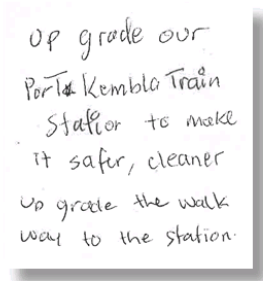 up grade our
Port Kembla Train
Station to make
it safer, cleaner
up grade the walk
way to the station.